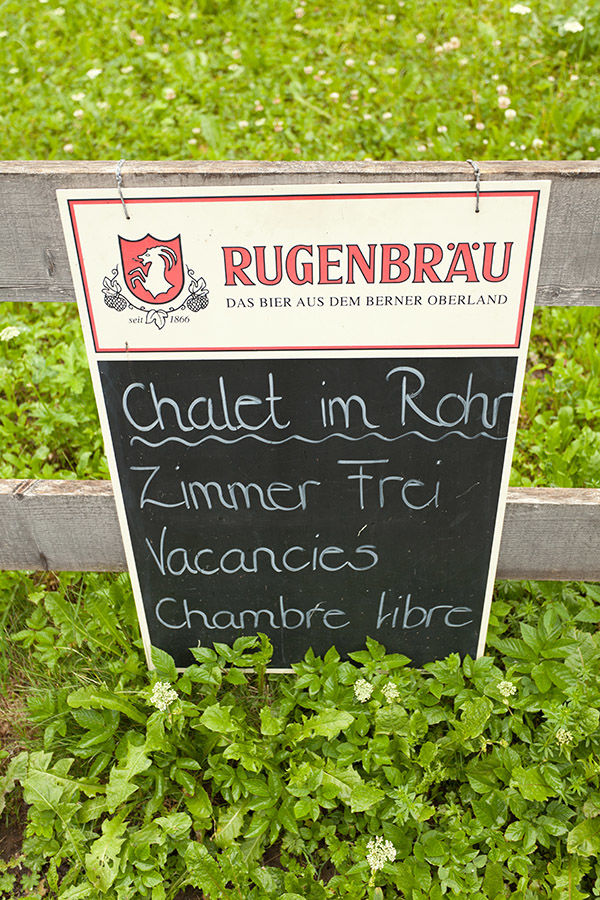 RUGENBRÄU
DAS BIER AUS DEM BERNER OBERLAND
seit 1866
Chalet im Rohr
Zimmer Frei
Vacancies
Chambre libre